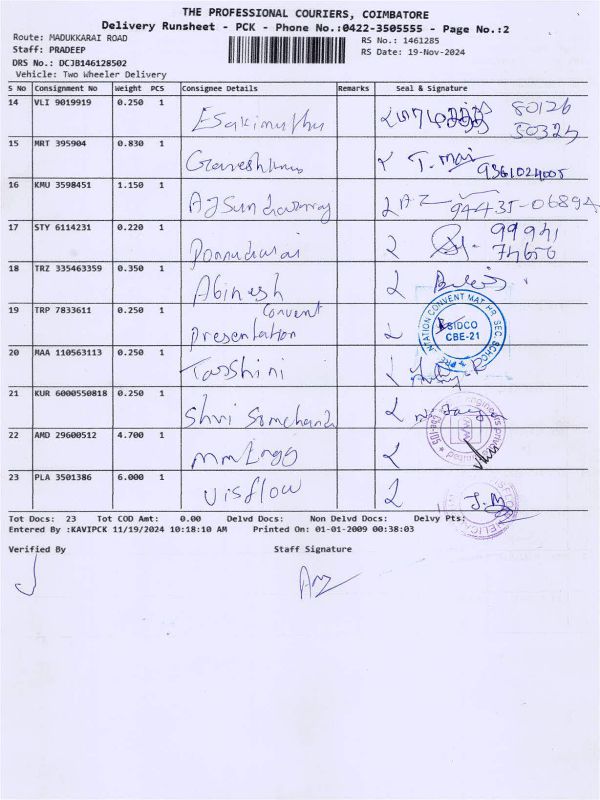 THE PROFESSIONAL COURIERS, COIMBATORE
Delivery Runsheet - PCK - Phone No.:0422-3505555 - Page No.:2
Route: MADUKKARAI ROAD
RS No.: 1461285
Staff: PRADEEP
RS Date: 19-Nov-2024
DRS No.: DCJB146128502
Vehicle: Two Wheeler Delivery
S No Consignment No Weight PCS Consignee Details Remarks Seal & Signature
14 VLI 9019919 0.250 1 Esakimuthu 80126
30324
15 MRT 395904 0.830 1 Ganeshkumar T. Mani
9361024005
16 KMU 3598451 1.150 1 AJ Sundarraj 94435-06894
17 STY 6114231 0.220 1 Ponnudurai 99941
74656
18 TRZ 335463359 0.350 1 Abinesh
19 TRP 7833611 0.250 1 Presentation Convent
SIDCO
CBE-21
20 MAA 110563113 0.250 1 Tarshini
21 KUR 6000550818 0.250 1 Shri Somchand
22 AMD 29600512 4.700 1
23 PLA 3501386 6.000 1 Visflow
Tot Docs: 23 Tot COD Amt: 0.00 Delvd Docs: Non Delvd Docs: Delvy Pts:
Entered By :KAVIPCK 11/19/2024 10:18:10 AM Printed On: 01-01-2009 00:38:03
Verified By Staff Signature